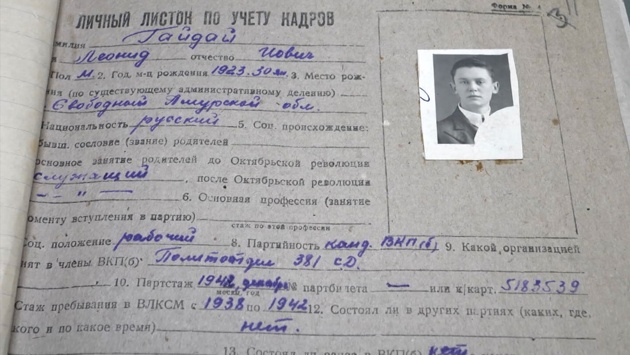 Форма №
ЛИЧНЫЙ ЛИСТОК ПО УЧЕТУ КАДРОВ
милия Гайдай
я Леонид отчество Иович
Пол М. 2. Год, м-ц рождения 1923. 30 3. Место рож-
ния (по существующему административному делению)
Свободный Амурской обл.
Национальность русский 5. Соц. происхождение:
бывш. сословие (звание) родителей
основное занятие родителей до Октябрьской революции
служащий, после Октябрьской революции
— " —
6. Основная профессия (занятие
моменту вступления в партию)
стаж по этой профессии
Соц. положение рабочий 8. Партийность канд. ВКП(б) 9. Какой организацией
нят в члены ВКП(б) Политотдел 381 с.д.
10. Партстаж 1942, декабрь № партбилета — или к/карт. 5183539
месяц, год
Стаж пребывания в ВЛКСМ с 1938 по 1942 12. Состоял ли в других партиях (каких, где,
кого и по какое время) нет.
13. Состоял ли ВКП(б) нет